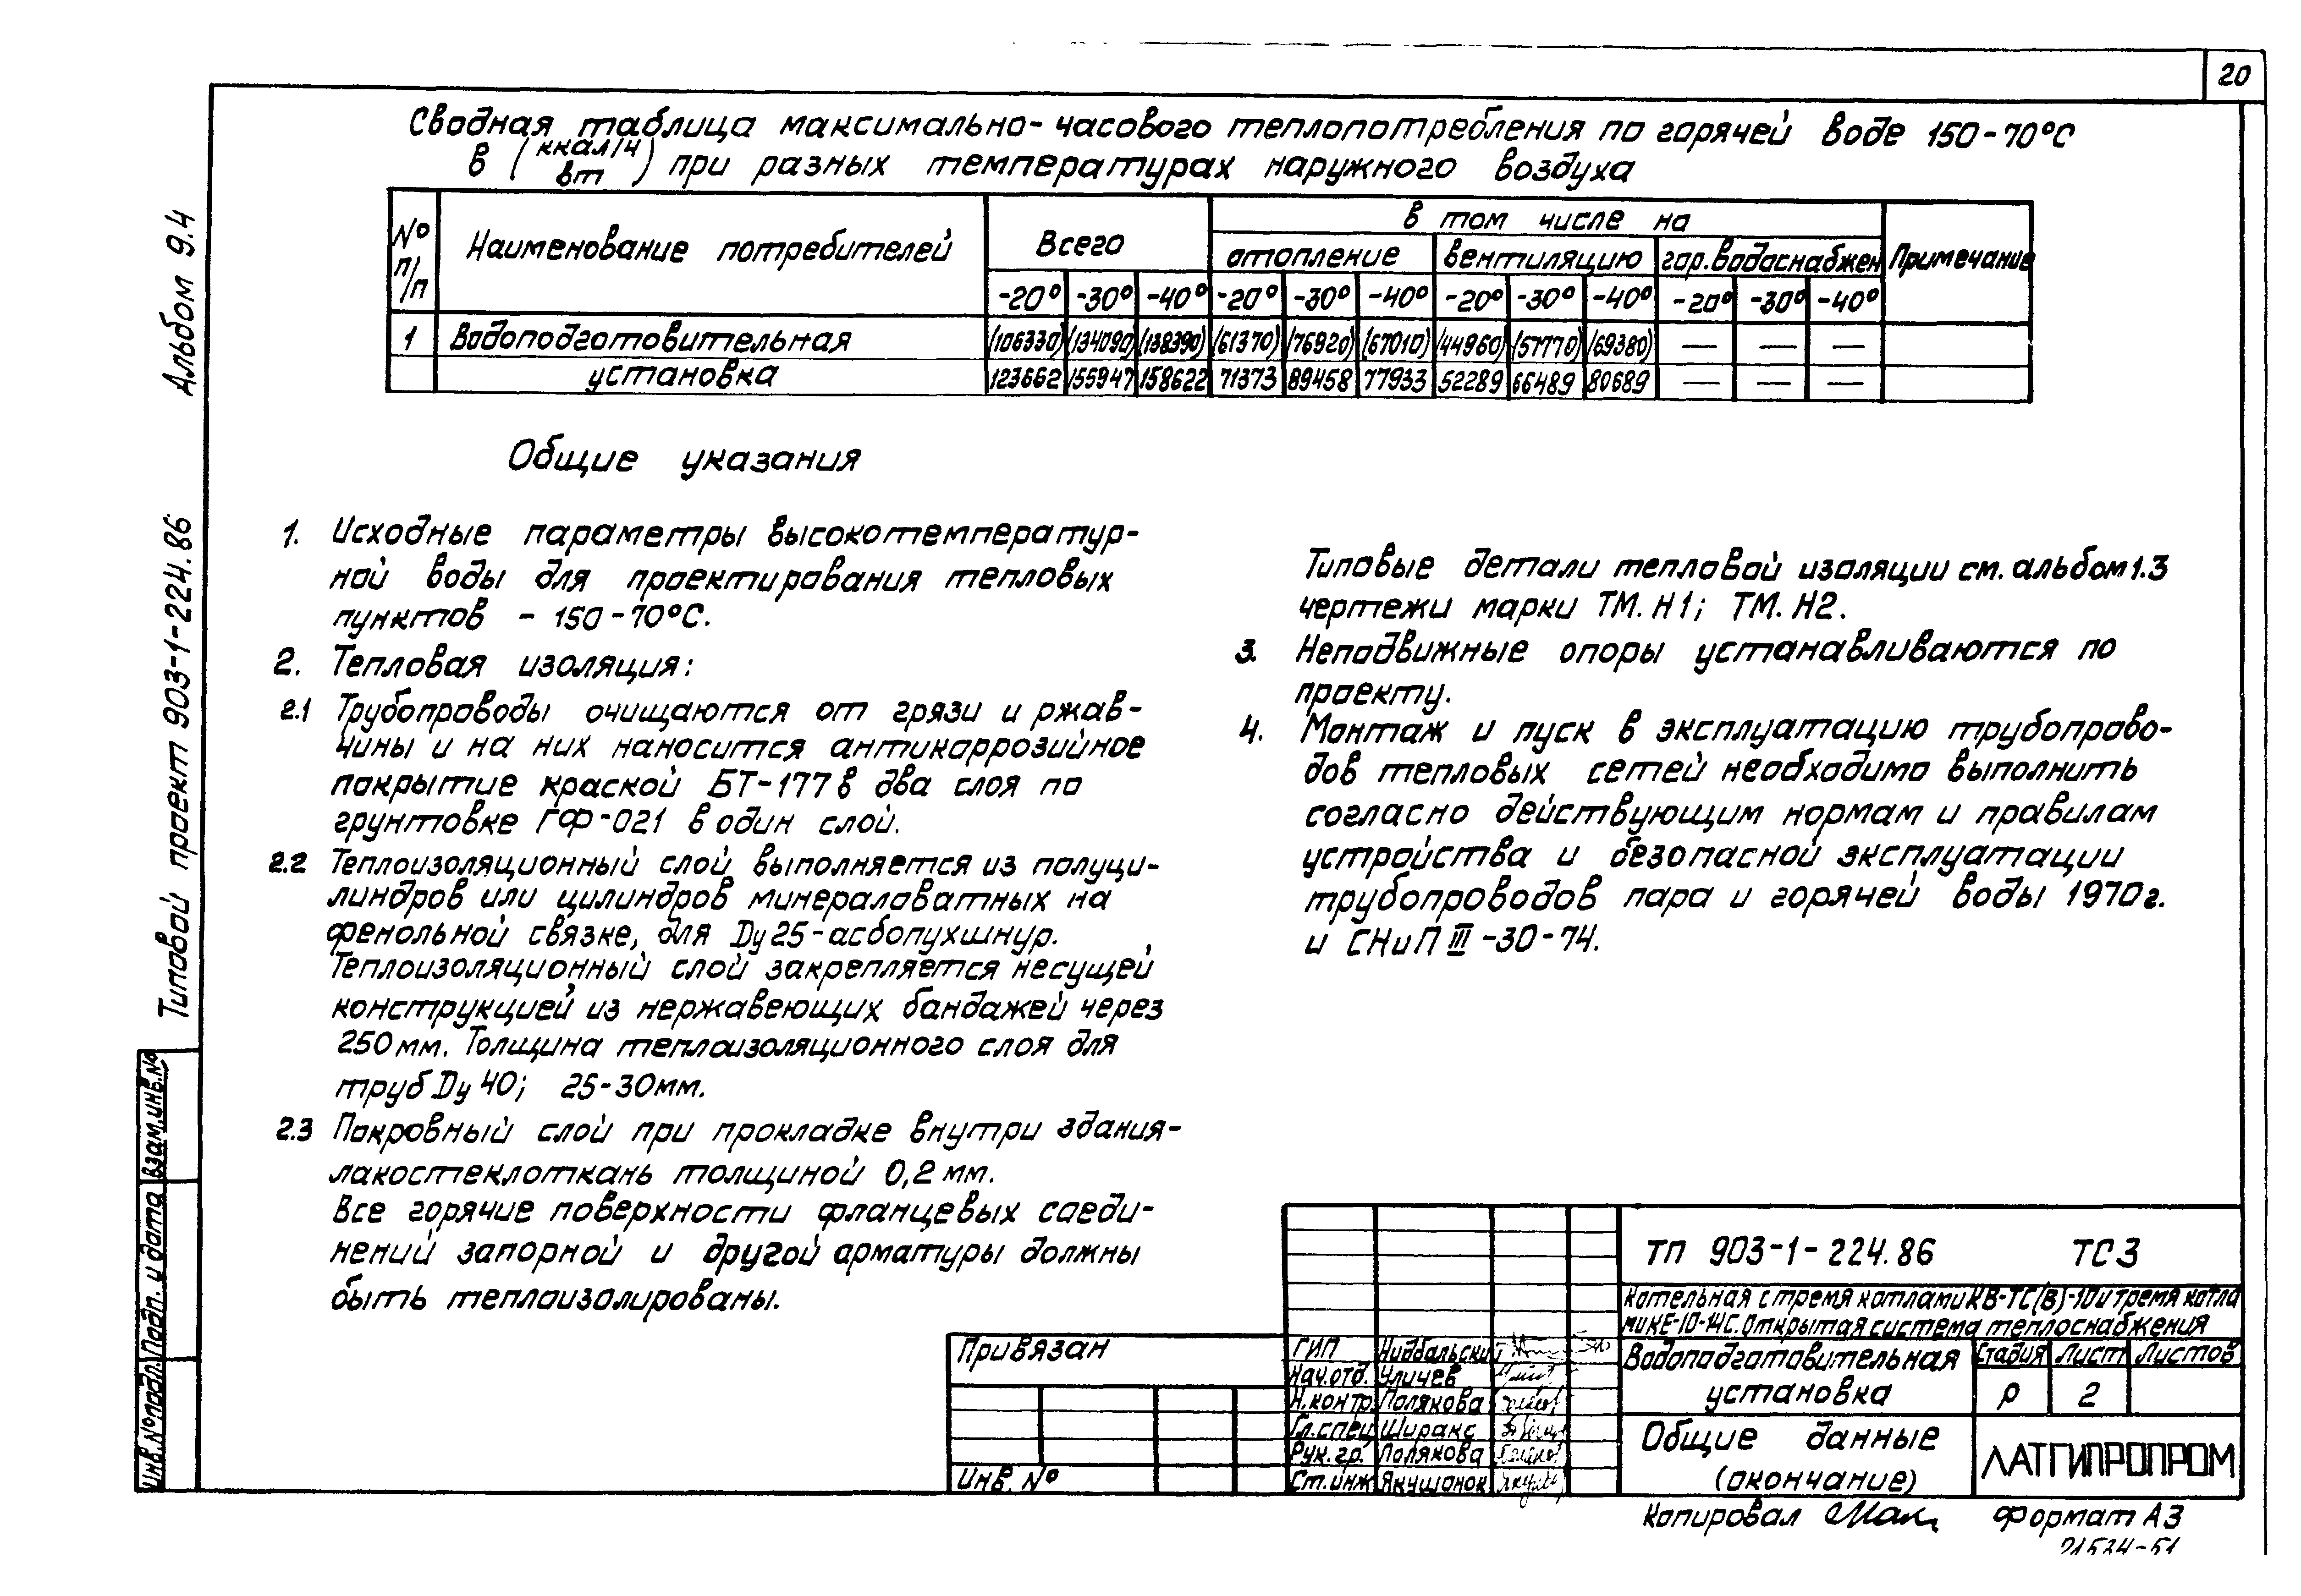 20
Сводная таблица максимально-часового теплопотребления по горячей воде 150-70°С
в (ккал/ч / вт) при разных температурах наружного воздуха
№ п/п
Наименование потребителей
Всего
в том числе на
Примечание
отопление
вентиляцию
гор.водоснабжен
-20° -30° -40° -20° -30° -40° -20° -30° -40° -20° -30° -40°
1 Водоподготовительная (106330) (134090) (138390) (61370) (76920) (67010) (44960) (57770) (69380) — — —
установка 123662 155947 158622 71373 89458 77933 52289 66489 80689 — — —
Общие указания
1. Исходные параметры высокотемператур-
ной воды для проектирования тепловых
пунктов - 150-70°С.
2. Тепловая изоляция:
2.1 Трубопроводы очищаются от грязи и ржав-
чины и на них наносится антикоррозийное
покрытие краской БТ-177 в два слоя по
грунтовке ГФ-021 в один слой.
2.2 Теплоизоляционный слой выполняется из полуци-
линдров или цилиндров минераловатных на
фенольной связке, для Dy 25-асбопухшнур.
Теплоизоляционный слой закрепляется несущей
конструкцией, из нержавеющих бандажей через
250мм. Толщина теплоизоляционного слоя для
труб Dy 40; 25-30мм.
2.3 Покровный слой при прокладке внутри здания-
лакостеклоткань толщиной 0,2 мм.
Все горячие поверхности фланцевых соеди-
нений запорной и другой арматуры должны
быть теплоизолированы.
Типовые детали тепловой изоляции см. альбом 1.3
чертежи марки ТМ.Н1; ТМ.Н2.
3. Неподвижные опоры устанавливаются по
проекту.
4. Монтаж и пуск в эксплуатацию трубопрово-
дов тепловых сетей необходимо выполнить
согласно действующим нормам и правилам
устройства и безопасной эксплуатации
трубопроводов пара и горячей воды 1970г.
и СНиП III-30-74.
Альбом 9.4
Типовой проект 903-1-224.86
Взам.инв.№
Подп. и дата
Инв.№подл.
Привязан
Инв. №
ГИП Нидбальский
Нач.отд. Уличев
Н.контр. Полякова
Гл.спец. Ширакс
Рук.гр. Полякова
Ст.инж Якушонок
ТП 903-1-224.86 ТС3
Котельная с тремя котлами КВ-ТС(В)-10 и тремя котла
ми КЕ-10-14С. Открытая система теплоснабжения
Водоподготовительная
установка
Стадия Лист Листов
Р 2
Общие данные
(окончание)
ЛАТГИПРОПРОМ
Копировал
Формат А3
21524-51